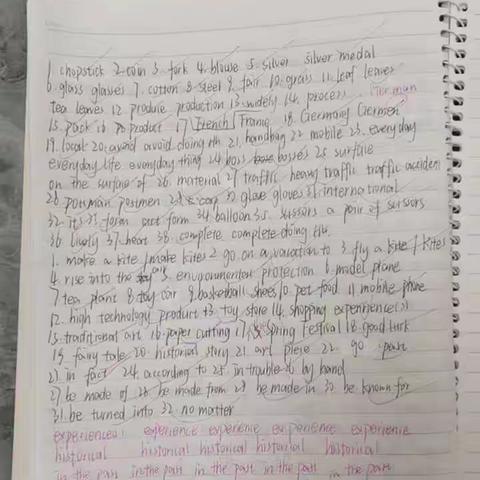 1. chopstick 2. coin 3. fork 4. blouse 5. silver silver medal
6. glass glasses 7. cotton 8. steel 9. fair 10. grass 11. leaf leaves
tea leaves 12. produce production 13. widely 14. process German
15. pack 16. product 17 French France 18. Germany Germen
19. local 20. avoid avoid doing sth 21. handbag 22 mobile 23. everyday
everyday life everyday thing 24 boss bosses 25 surface
on the surface of 26. material 27 traffic heavy traffic traffic accident
28. postman postmen 29 30 glove gloves 31. international
32. its 33. form art form 34 balloon 35. scissors a pair of scissors
36. lively 37. heat 38. complete complete doing sth.
1. make a kite / make kites 2 go on a vacation to 3. fly a kite / kites
4. rise into the air 5. environmental protection 6. model plane
7 tea plant 8 toy car 9. basketball shoes 10 pet food 11 mobile phone
12. high technology product 13 toy store 14. shopping experience(s)
15. traditional art 16. paper cutting 17. Spring Festival 18 good luck
19. fairy tale 20. historical story 21. art piece 22. go
23. in fact 24. according to 25. in trouble 26 by hand
27 be made of 28. be made from 29 be made in 30 be known for
31. be turned into 32. no matter
experiences: experience experience experience experience
historical historical historical historical historical
in the past in the past in the past in the past in the past